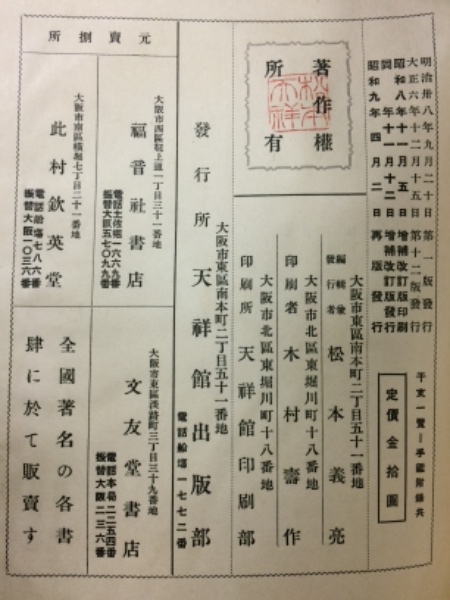 明治卅八年九月二十日第一版發行
大正六年十二月十五日第十二版發行
昭和八年十一月五日增補改訂版印刷
同年十一月十二日增補改訂版發行
昭和九年四月二日再版發行
干支一覽─手鑑附錄共
定價金拾圓
著作權
所有
大阪市東區南本町二丁目五十一番地
編輯兼
發行者 松本義亮
大阪市北區東堀川町十八番地
印刷者 木村壽作
大阪市北區東堀川町十八番地
印刷所 天祥館印刷部
大阪市東區南本町二丁目五十一番地
發行所 天祥館出版部
電話船場一七七二番
元賣捌所
大阪市西區靱上通一丁目三十一番地
福音社書店
電話土佐堀一六六九番
振替大阪五七〇九九番
大阪市東區淡路町三丁目三十九番地
文友堂書店
電話本局二二五四番
振替大阪二三六番
大阪市南區橫堀七丁目二十一番地
此村欽英堂
電話船場七八六番
振替大阪一〇三六番
全國著名の各書
肆に於て販賣す